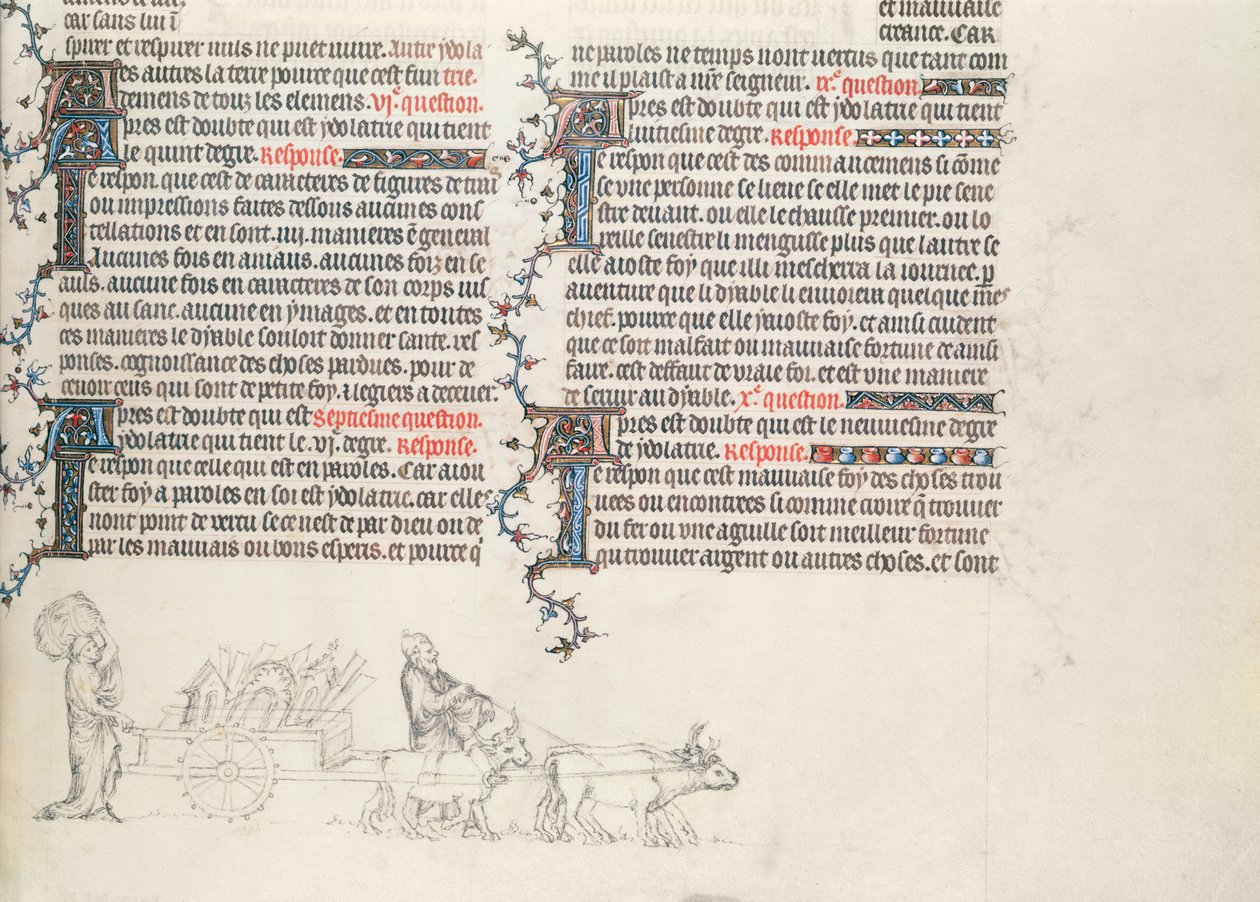 car sans lui ī
spirer et respirer nuls ne puet viure. Autre ydola
es autres la terre pource que cest fun trie.
demens de touz les elemens. vjͤ. question.
Apres est doubte qui est ydolatire qui tient
le quint degre. Response.
Je respon. que cest de caracteres de figures de
ou impressions faites dessous aucunes cons
tellations et en sont .iiij. manieres ē general
Aucunes fois en aniaus. aucunes foiz en se
aus. aucune fois en caracteres de son corps ius
ques au sanc. aucune en ymages. et en toutes
ces manieres le dyable souloit donner sante. res
ponses. cognoissance des choses pardues. pour de
ceuoir ceus qui sont de petite foy. ⁊ legiers a deceuer.
Apres est doubte qui est Septiesme question.
ydolatrie qui tient le .vj. degre. Response.
Je respon que celle qui est en paroles. Car aiou
ster foy a paroles en soi est ydolatrie. car elles
nont point de vertu se ce nest de par dieu ou de
par les mauuais ou bons esperis. et pource q̄
et mauuaise
creance. Car
ne paroles ne temps nont vertus que tant com
me il plaist a nr̄e seigneur. ixͤ. question
Apres est doubte qui est ydolatire qui tient
luitiesme degre. Response.
Je respon que cest des commancemens si cōme
se vne personne se lieue se elle met le pie sene
stre deuant. ou elle le chausse premier. ou lo
reille senestre li mengusse plus que lautre se
elle aioste foy que il li mescherra la iournee. p̱
auenture que li dyable li enuoiera quelque mes
chief. pource que elle y aioste foy. et ainsi cuident
que ce soit malfait ou mauuaise fortune de ainsi
faire. cest deffaut de vraie foi. et est vne maniere
de seruir au dyable. xͤ. question.
Apres est doubte qui est le neuuiesme degre
de ydolatrie. Response.
Je respon que cest mauuaise foy des choses trou
uees ou encontrees si comme croire q̄ trouuer
du fer ou vne aguille soit meilleur fortune
qui trouuer argent ou autres choses. et sont